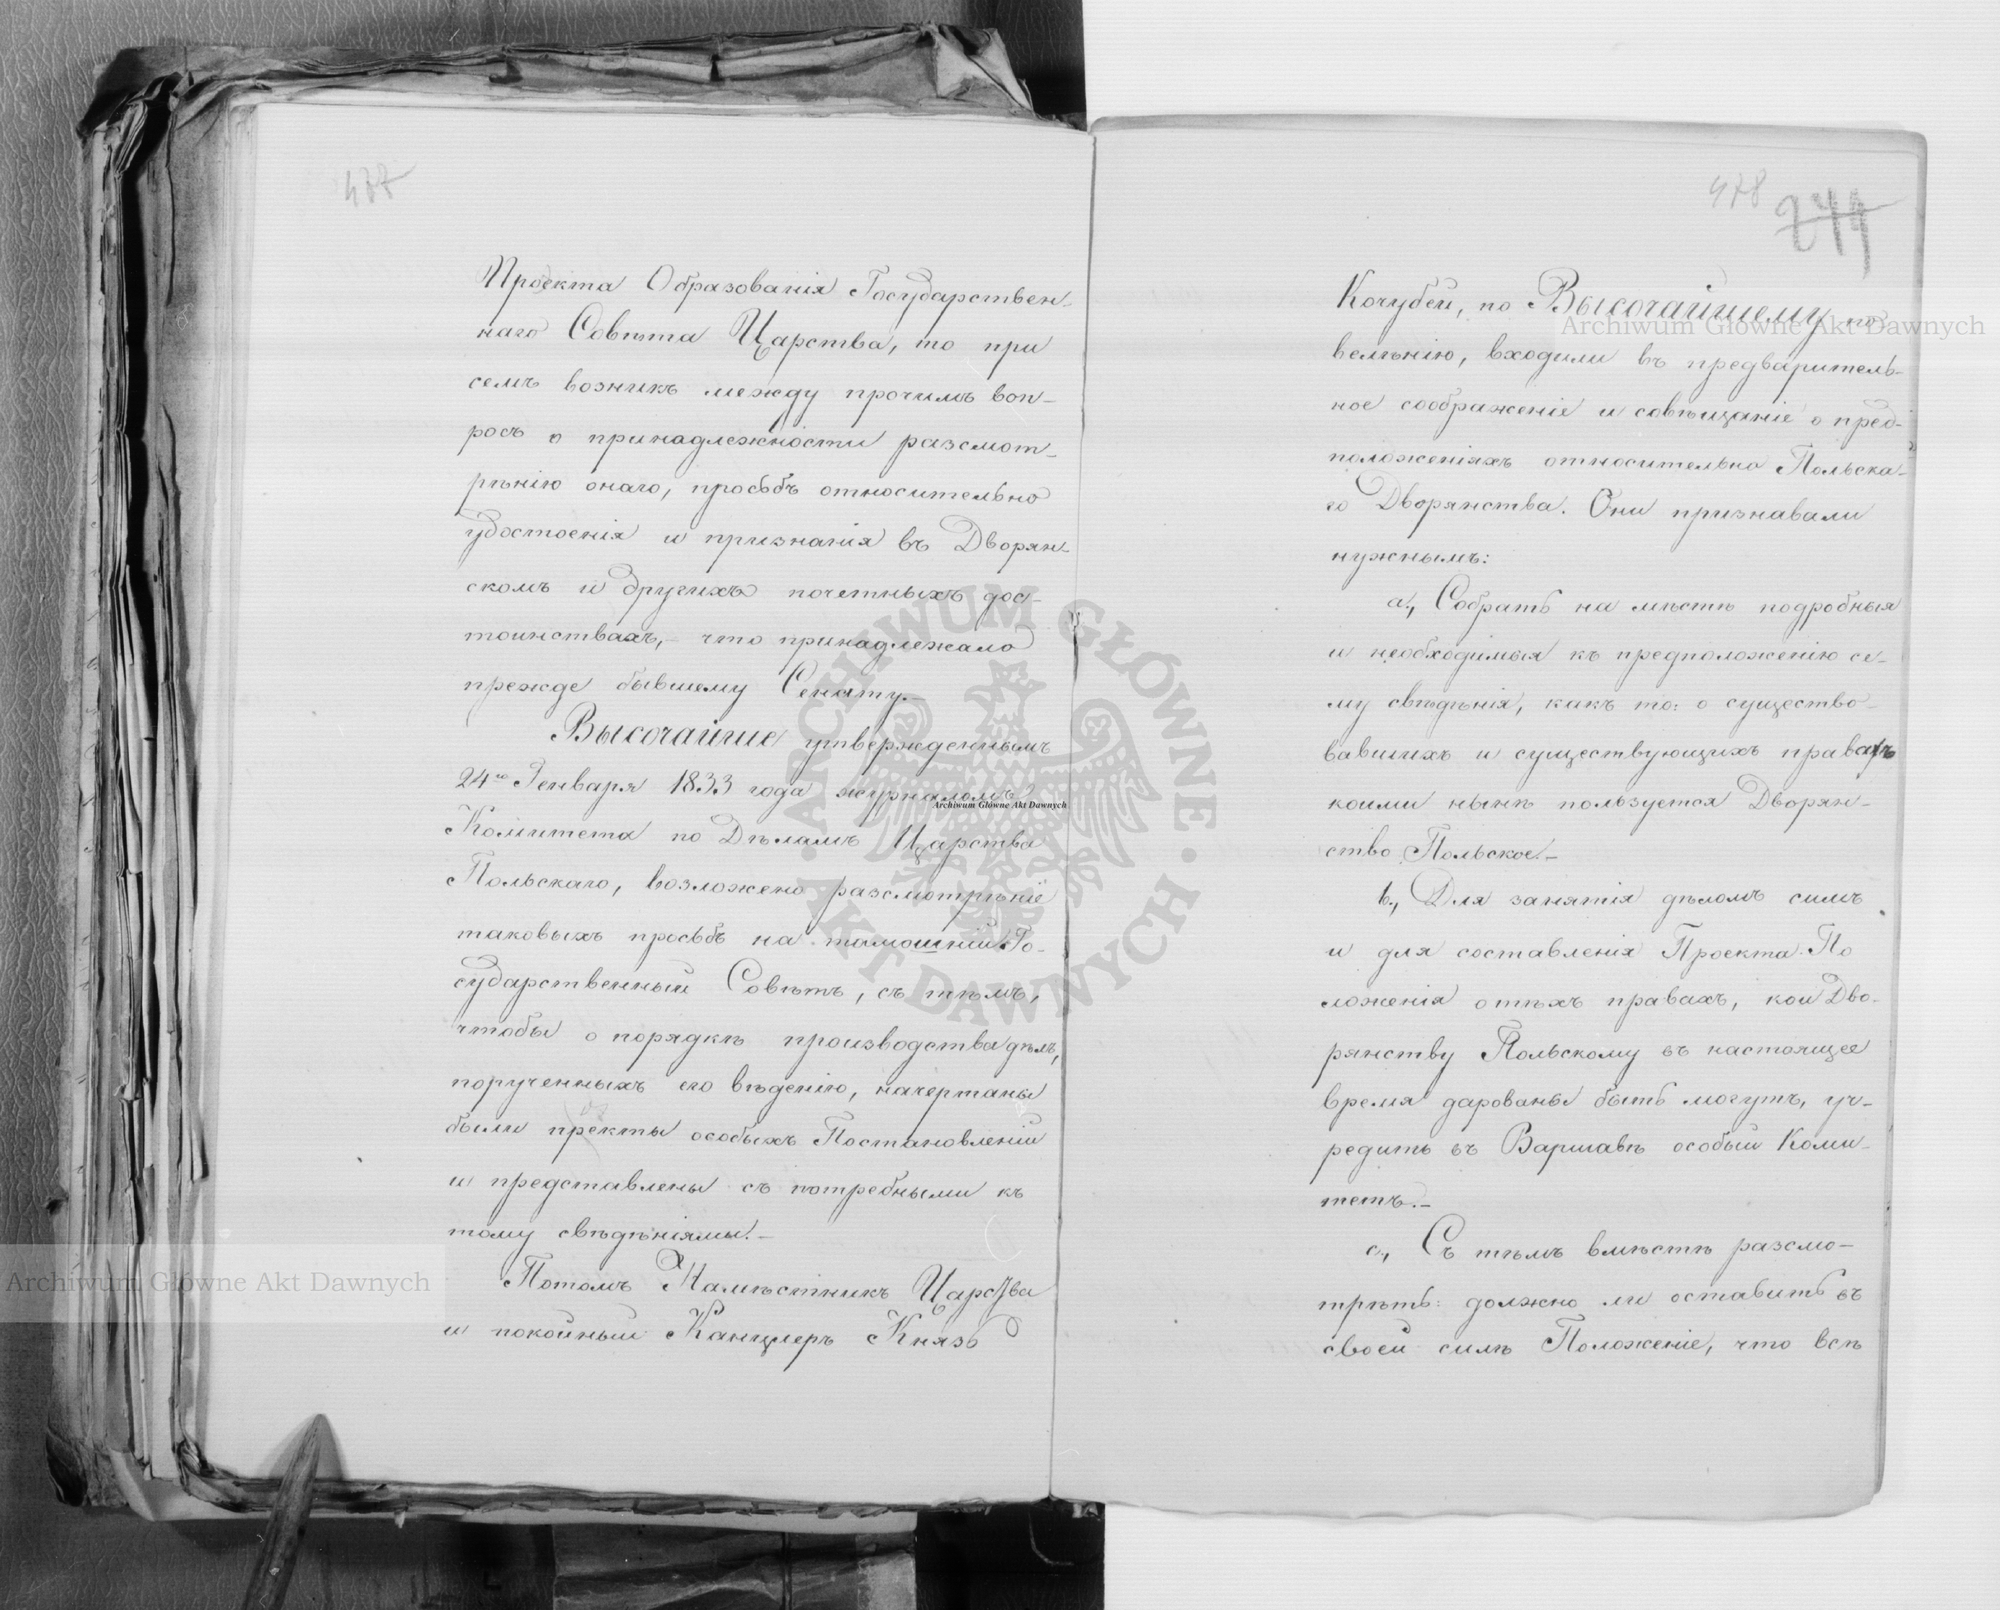 477
Проекта Образованія Государствен-
наго Совѣта Царства, то при
семъ возникъ между прочимъ воп-
росъ о принадлежности разсмот-
рѣнію онаго, просьбъ относительно
удостоенія и признанія въ Дворян-
скомъ и другихъ почетныхъ дос-
тоинствахъ, - что принадлежало
прежде бывшему Сенату.-
Высочайше утвержденнымъ
24го Генваря 1833 года журналомъ
Комитета по Дѣламъ Царства
Польскаго, возложено разсмотрѣніе
таковыхъ просьбъ на тамошній Го-
сударственный Совѣтъ, съ тѣмъ,
чтобы о порядкѣ производства дѣлъ,
порученныхъ его вѣденію, начертаны
были проекты особыхъ Постановленій
и представлены съ потребными къ
тому свѣдѣніями.-
Потомъ Намѣстникъ Царства
и покойный Канцлеръ Князь
478
244
Кочубей, по Высочайшему по-
велѣнію, входили въ предваритель-
ное соображеніе и совѣщаніе о пред-
положеніяхъ относительно Польска-
го Дворянства. Они признавали
нужнымъ:
а., Собрать на мѣстѣ подробныя
и необходимыя къ предположенію се-
му свѣдѣнія, какъ то: о существо-
вавшихъ и существующихъ правахъ
коими нынѣ пользуется Дворян-
ство Польское.-
b., Для занятія дѣломъ симъ
и для составленія Проекта По
ложенія о тѣхъ правахъ, кои Дво-
рянству Польскому въ настоящее
время дарованы быть могутъ, уч-
редить въ Варшавѣ особый Коми-
тетъ.-
с., Съ тѣмъ вмѣстѣ разсмо-
трѣть: должно ли оставить въ
своей силѣ Положеніе, что всѣ
Archiwum Główne Akt Dawnych
Archiwum Główne Akt Dawnych
Archiwum Główne Akt Dawnych
ARCHIWUM GŁÓWNE · AKT DAWNYCH ·